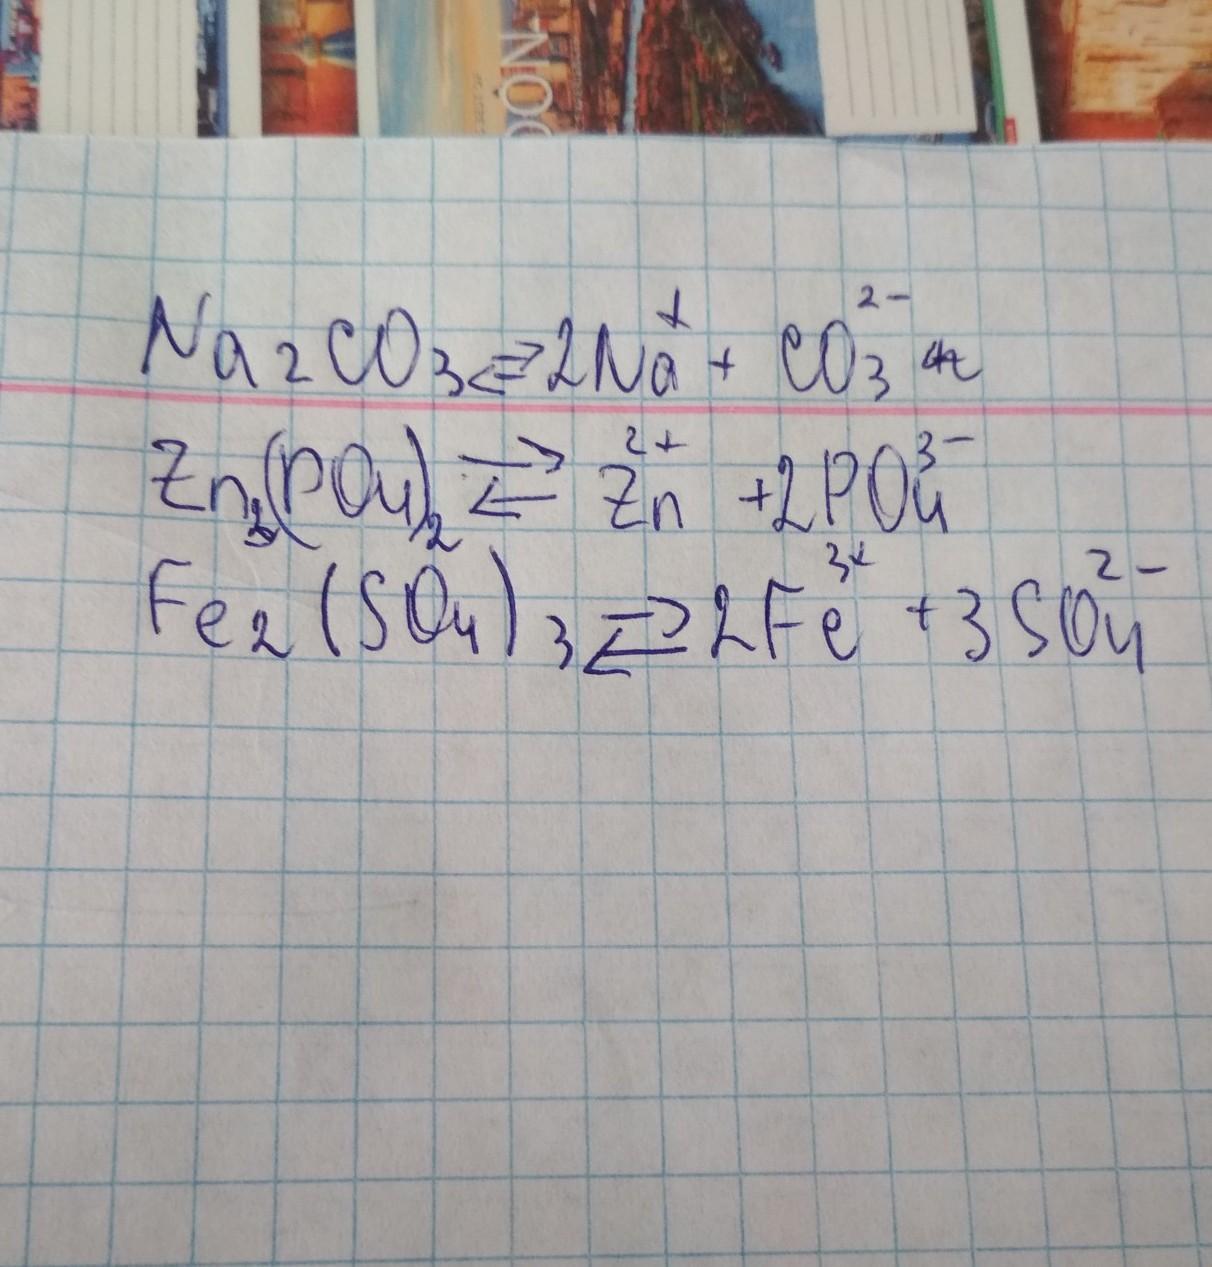 Na₂CO₃ ⇄ 2Na⁺ + CO₃²⁻
Zn₃(PO₄)₂ ⇄ Zn²⁺ + 2PO₄³⁻
Fe₂(SO₄)₃ ⇄ 2Fe³⁺ + 3SO₄²⁻